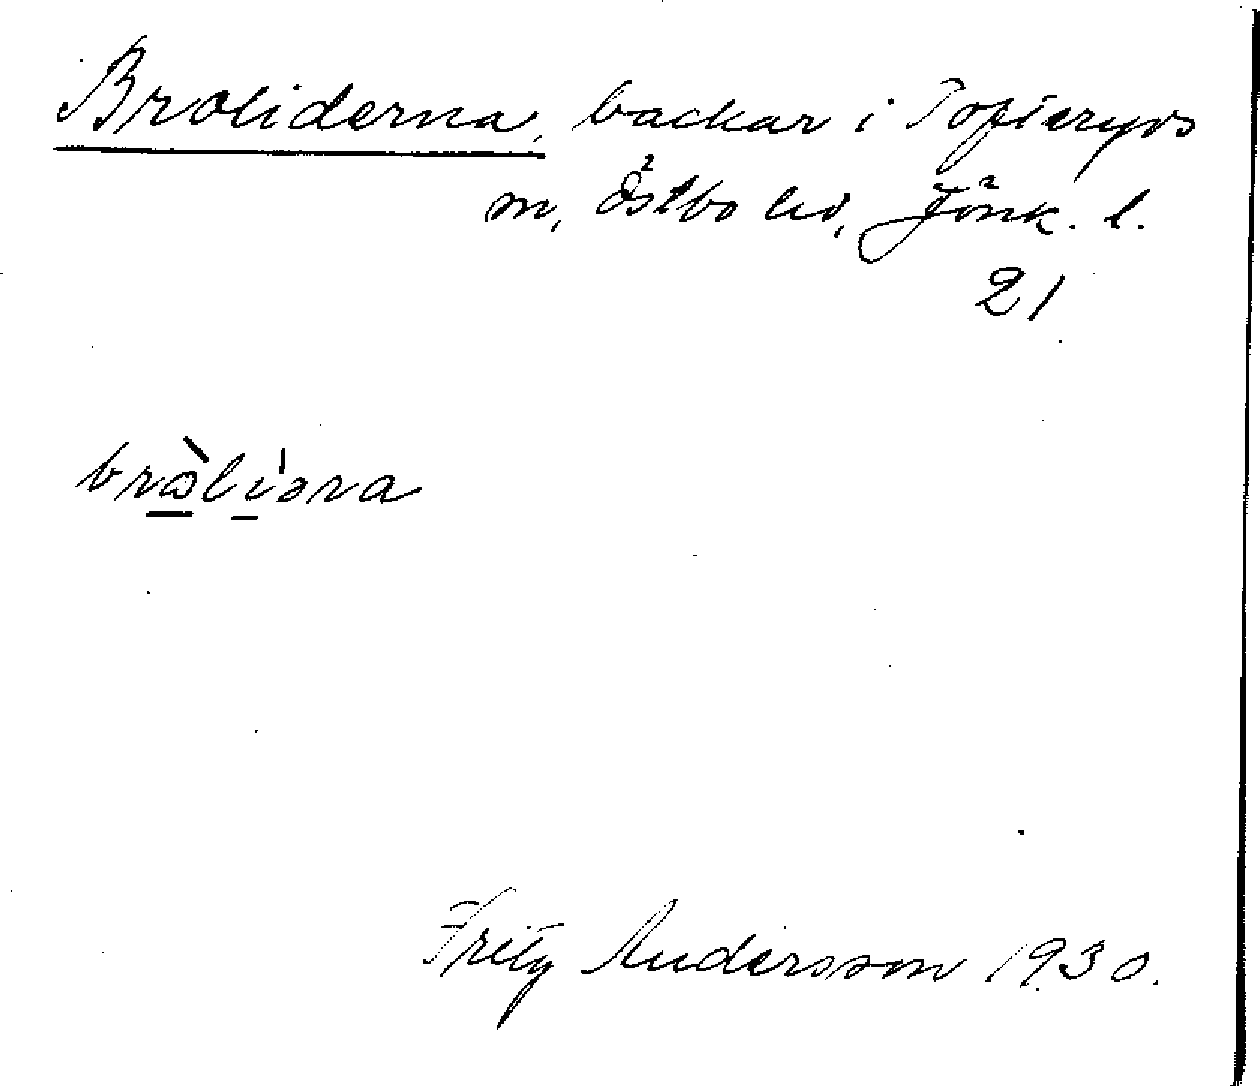 Broliderna, backar i Tofteryds
sn, Östbo hd, Jönk. l.
21
bròlíəna
Fritz Andersson 1930.